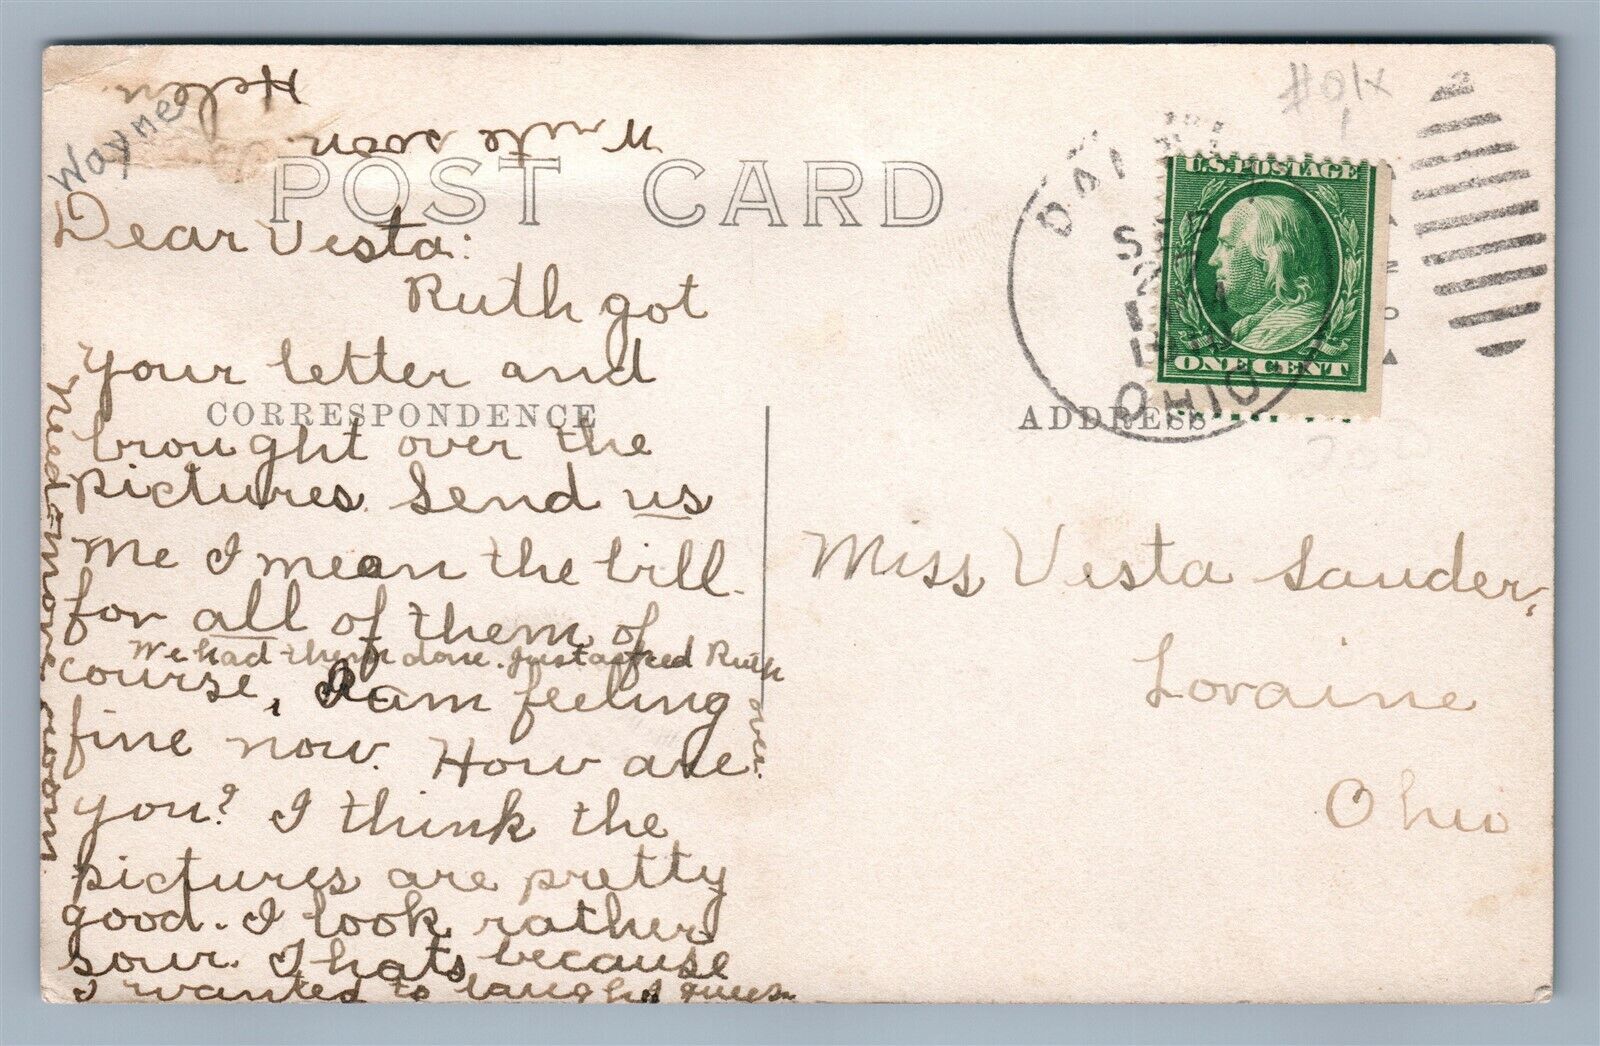 Helen.
Write soon.
Wayne
POST CARD
Dear Vesta:
Ruth got
your letter and
CORRESPONDENCE
brought over the
pictures. Send us
me I mean the bill.
for all of them of
We had them done. Just asked Ruth
course, I am feeling
over.
fine now. How are
you? I think the
pictures are pretty
good. I look rather
sour. Thats because
I wanted to laugh I guess.
Need more room
ADDRESS
U.S. POSTAGE
ONE CENT
SEP
OHIO
Miss Vesta Sander,
Loraine
Ohio